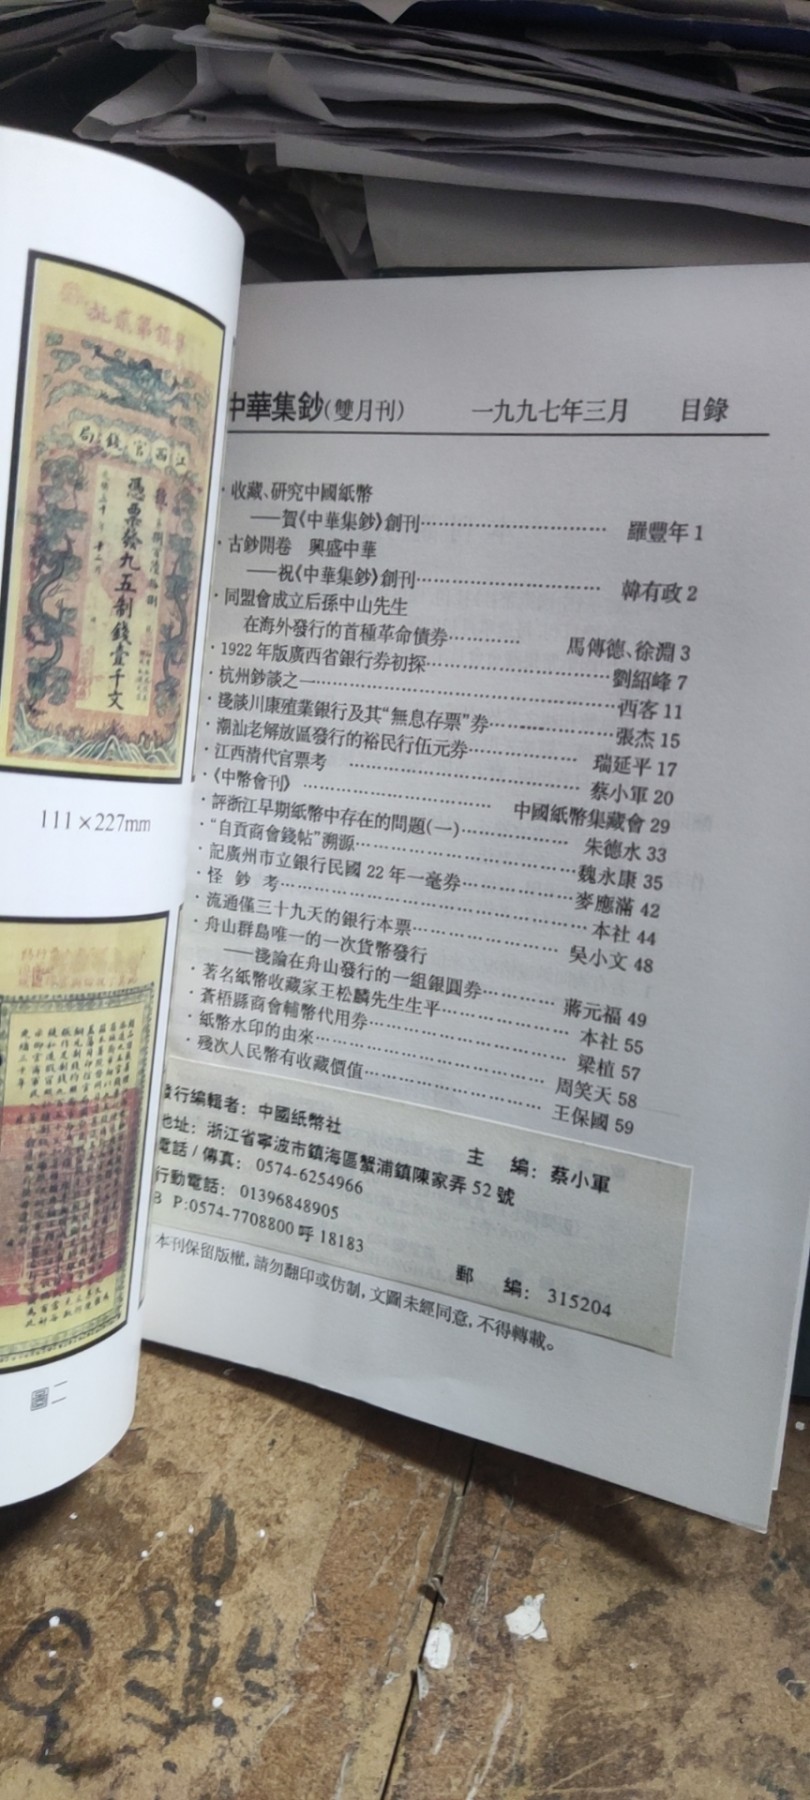 江西官錢局
憑票發九五制錢壹千文
111×227mm
圖二
中華集鈔(雙月刊) 一九九七年三月 目錄
·收藏、研究中國紙幣
——賀《中華集鈔》創刊 羅豐年 1
·古鈔開卷 興盛中華
——祝《中華集鈔》創刊 韓有政 2
·同盟會成立后孫中山先生
在海外發行的首種革命債券 馬傳德、徐淵 3
·1922年版廣西省銀行券初探 劉紹峰 7
·杭州鈔談之一 西客 11
·淺談川康殖業銀行及其“無息存票”券 張杰 15
·潮汕老解放區發行的裕民行伍元券 瑞延平 17
·江西清代官票考 蔡小軍 20
·《中幣會刊》 中國紙幣集藏會 29
·評浙江早期紙幣中存在的問題(一) 朱德水 33
·“自貢商會錢帖”溯源 魏永康 35
·記廣州市立銀行民國22年一毫券 麥應滿 42
·怪鈔考 本社 44
·流通僅三十九天的銀行本票 吳小文 48
·舟山群島唯一的一次貨幣發行
——淺論在舟山發行的一組銀圓券 蔣元福 49
·著名紙幣收藏家王松麟先生生平 本社 55
·蒼梧縣商會輔幣代用券 梁植 57
·紙幣水印的由來 周笑天 58
·殘次人民幣有收藏價值 王保國 59
發行編輯者：中國紙幣社 主 編：蔡小軍
地址：浙江省寧波市鎮海區蟹浦鎮陳家弄52號
電話/傳真：0574-6254966
行動電話：01396848905
B P:0574-7708800呼18183 郵 編：315204
本刊保留版權,請勿翻印或仿制,文圖未經同意,不得轉載。